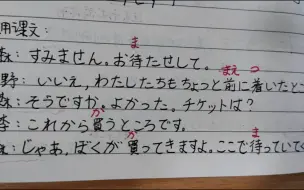 用课文：
森：すみません。お待たせして。
野：いいえ，わたしたちもちょっと前に着いたとこ
森：そうですか。よかった。チケットは？
李：これから買うところです。
森：じゃあ，ぼくが買ってきますよ。ここで待っていてく